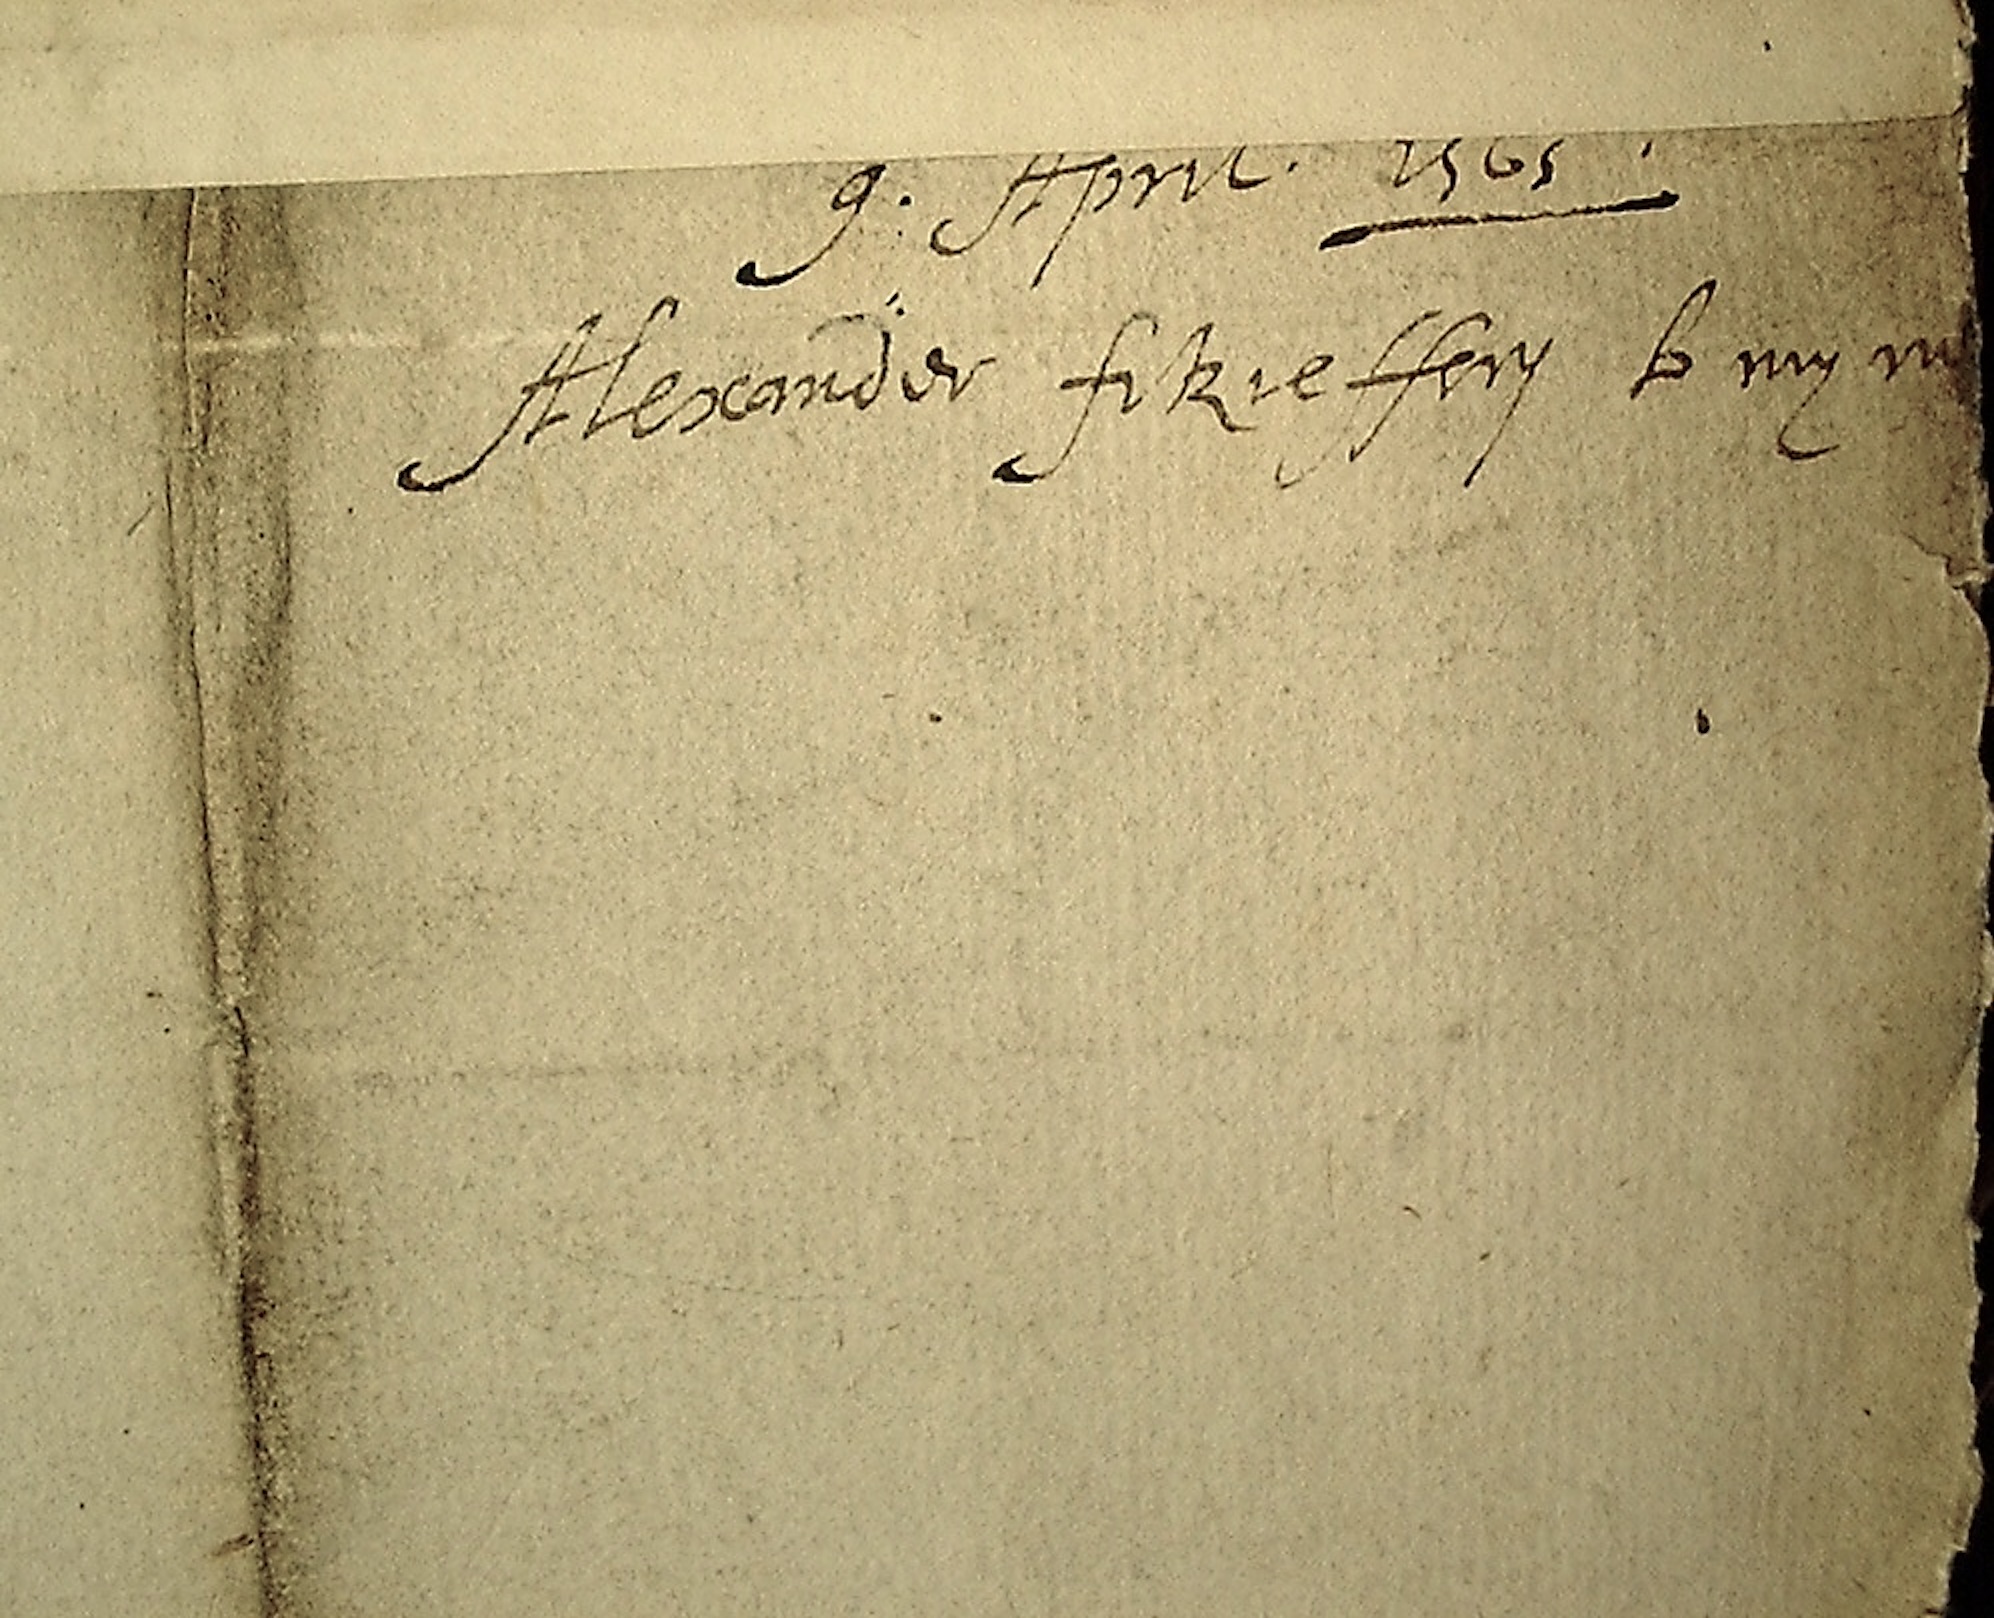 9. April. 1565.
Alexander fitzieffery to my m